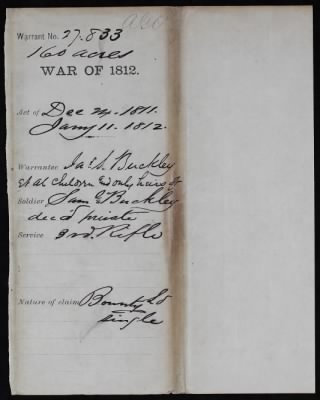 Warrant No. 27.833
160 acres
WAR OF 1812.
Act of Dec 24. 1811.
Jany 11. 1812.
Warrantee Jas. S. Buckley
et al children & only heirs of
Soldier Saml Buckley
decd private
Service 3rd. Rifle
Nature of claim Bounty Ld
single